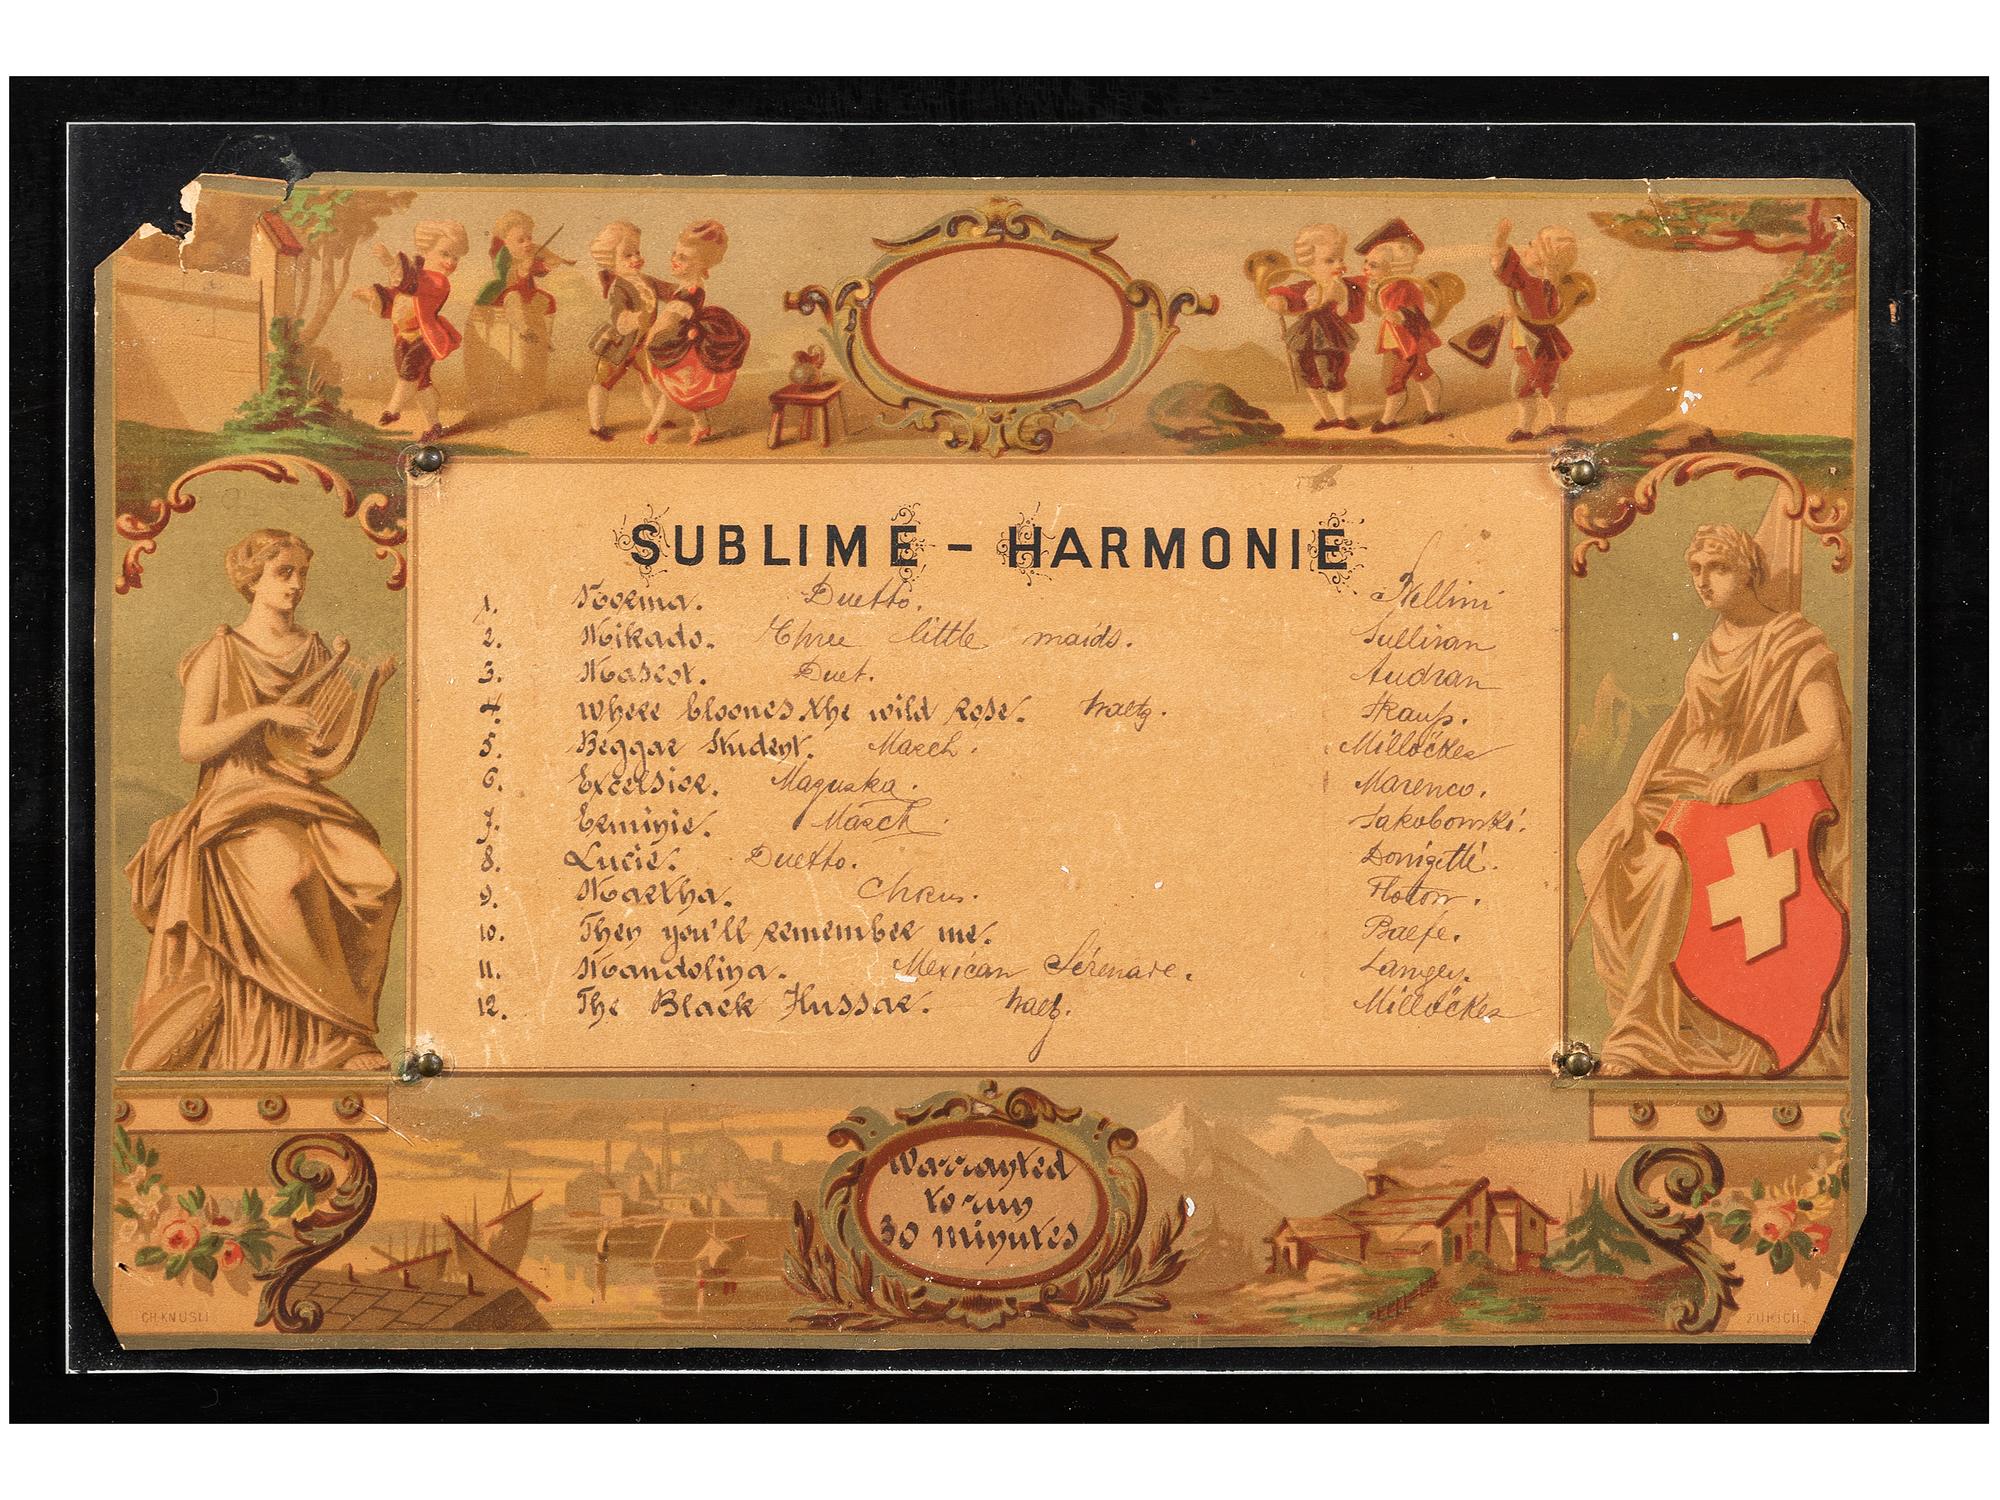 SUBLIME - HARMONIE
1. Norma. Duetto. Bellini
2. Mikado. Three little maids. Sullivan
3. Mascot. Duet. Audran
4. Where bloomes the wild rose. Waltz. Strauss.
5. Beggar Student. March. Millöcker
6. Excelsior. Mazurka. Marenco.
7. Erminie. March. Jakobowski.
8. Lucie. Duetto. Donizetti.
9. Martha. Chorus. Flotow.
10. Then you'll remember me. Balfe.
11. Mandolina. Mexican Sérenade. Langey.
12. The Black Hussar. Waltz. Millöcker
Warranted
to run
30 minutes
CH. KNÜSLI ZÜRICH.